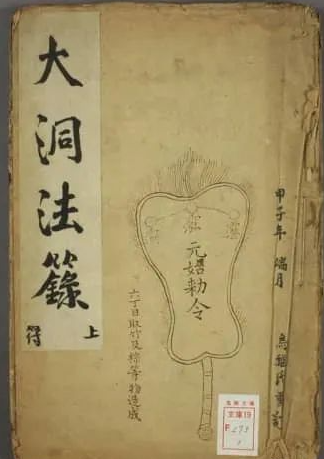 大洞法籙
上
符
元始勅令
六丁日取竹及棕等物造成
甲子年 端月
文庫19
F